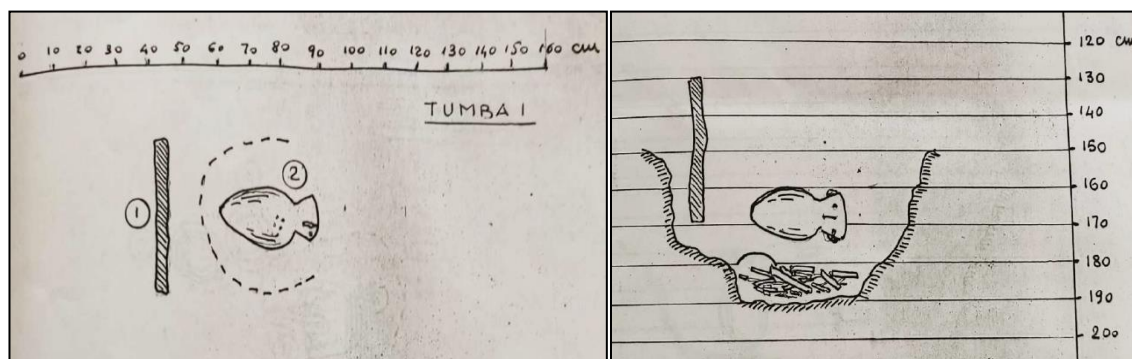 0 10 20 30 40 50 60 70 80 90 100 110 120 130 140 150 160 cm
TUMBA 1
2
1
120 cm
130
140
150
160
170
180
190
200